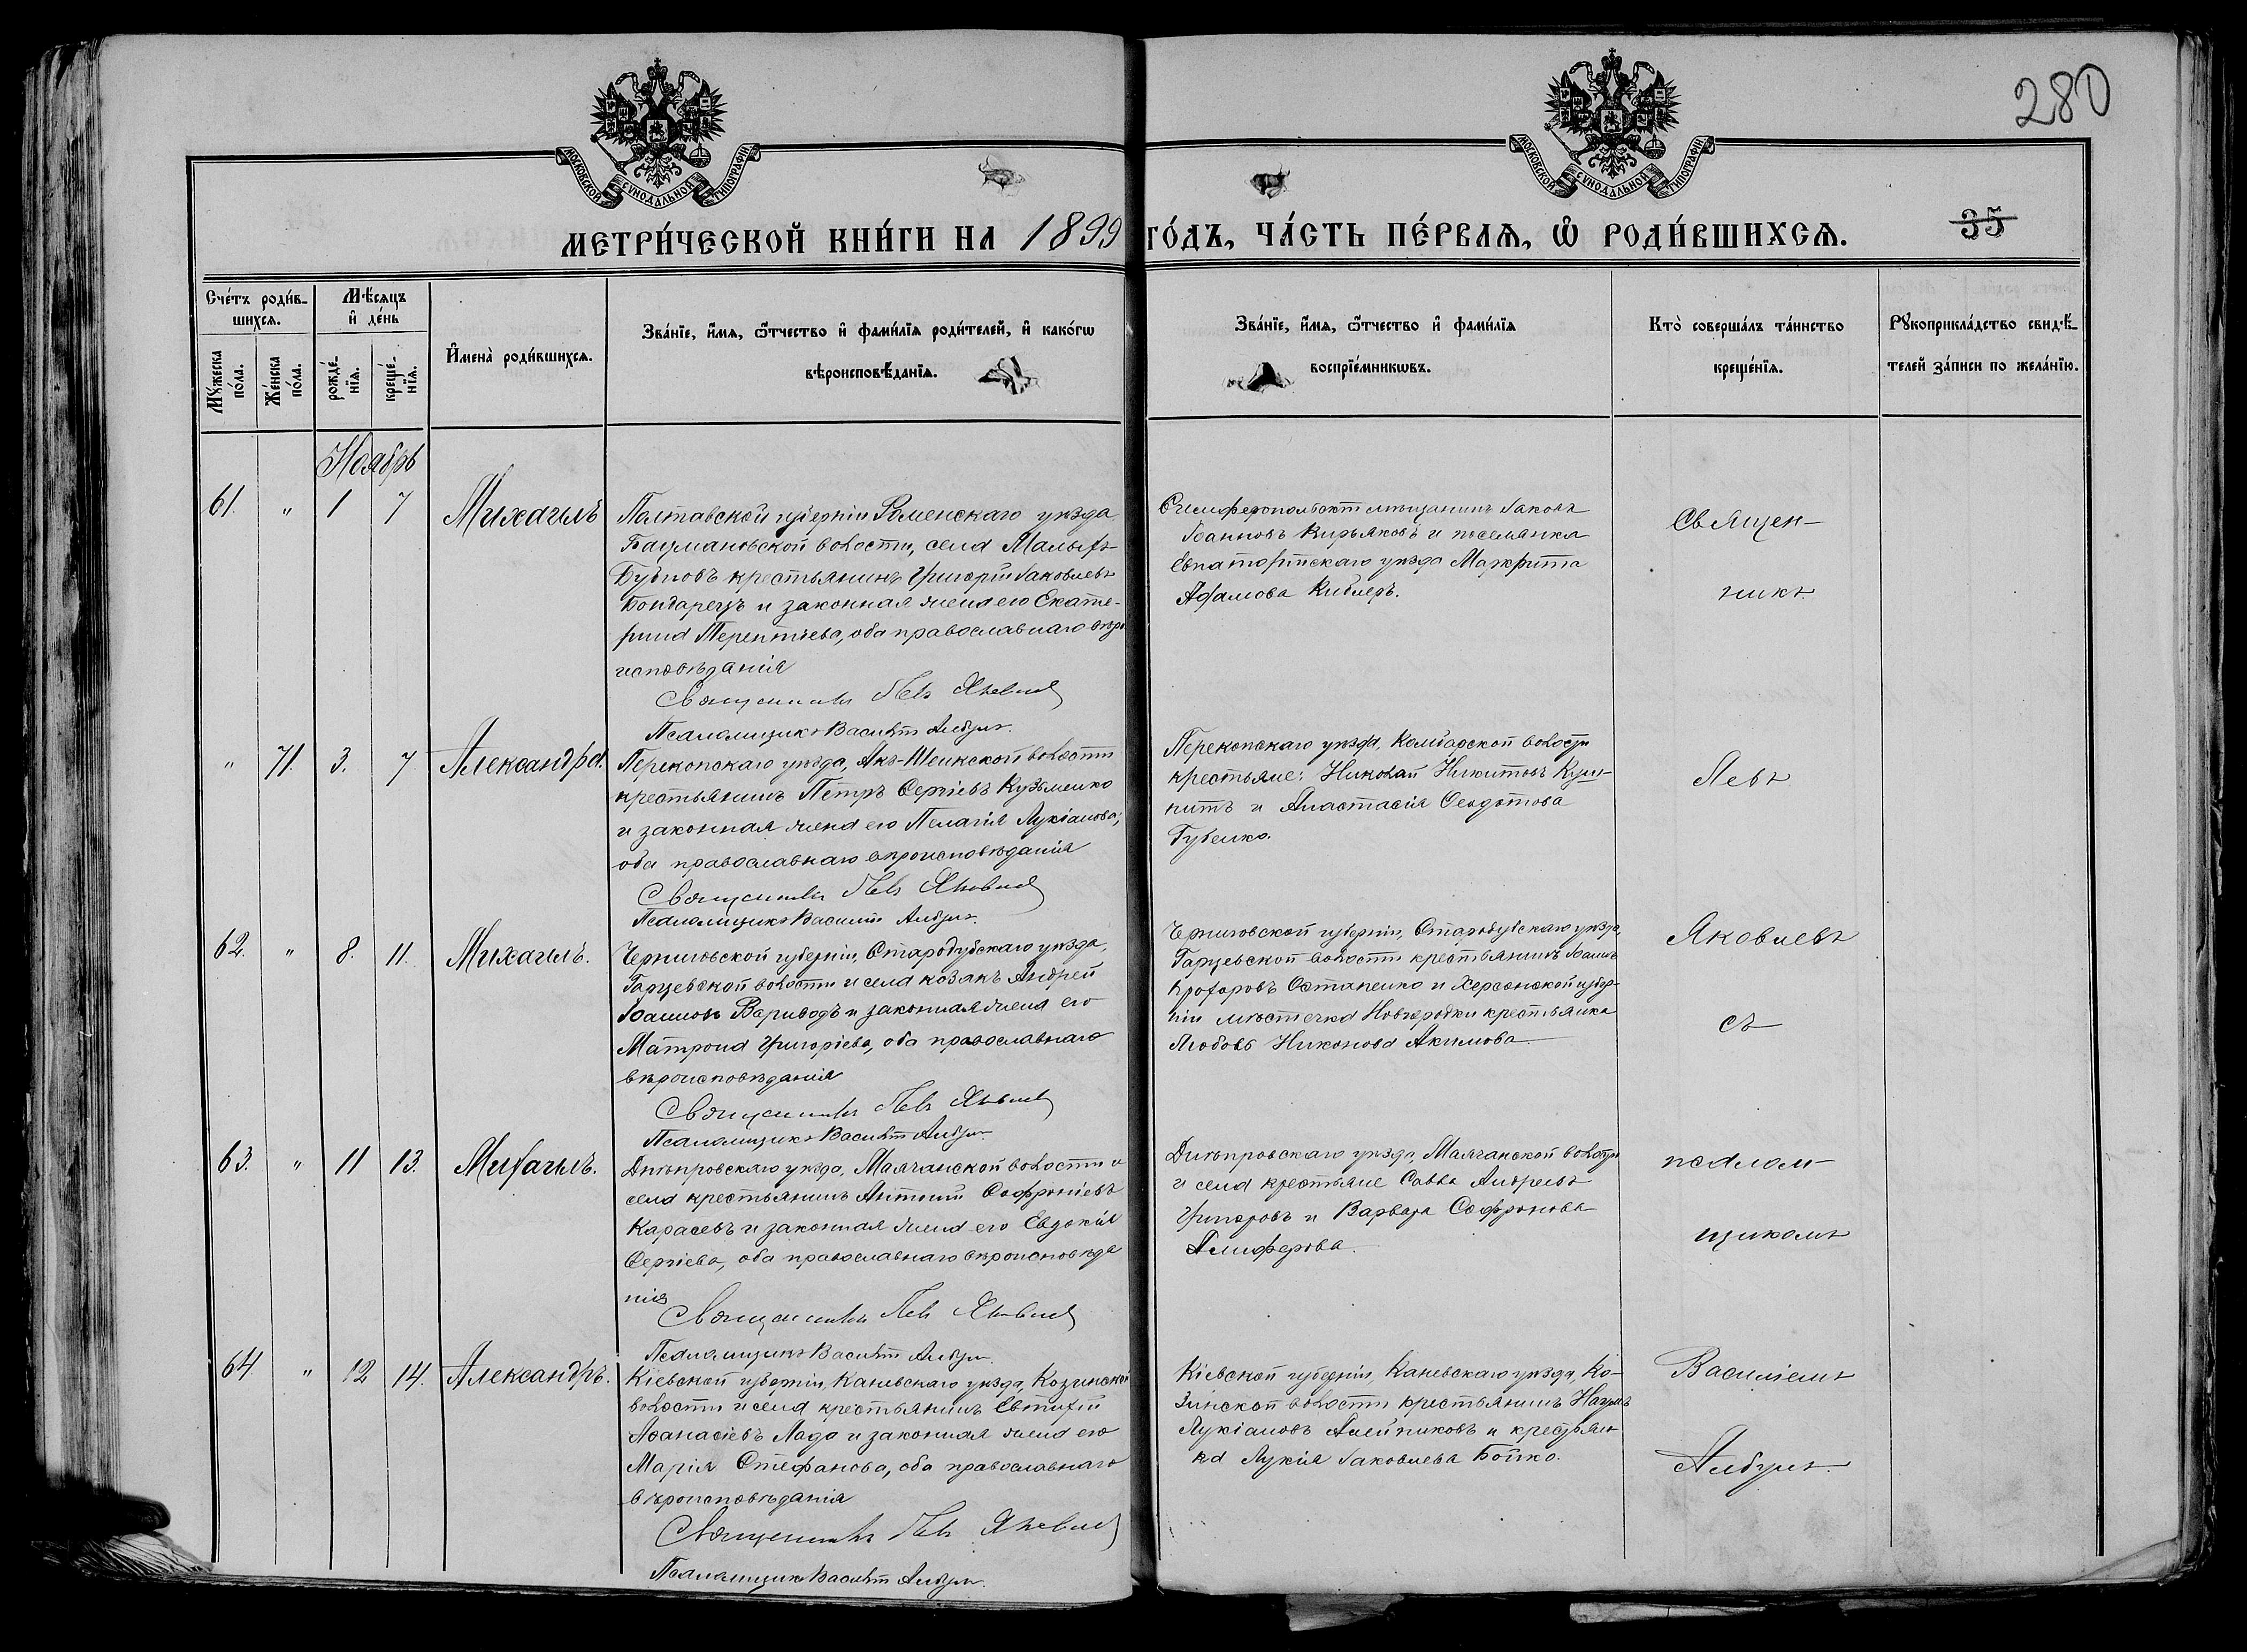 280
МОСКОВСКОЙ СѴНОДАЛЬНОЙ ТИПОГРАФІИ
МОСКОВСКОЙ СѴНОДАЛЬНОЙ ТИПОГРАФІИ
МЕТРИ́ЧЕСКОЙ КНИ́ГИ НА 1899 ГО́ДЪ, ЧА́СТЬ ПЕ́РВАѦ, Ѽ РОДИ́ВШИХСѦ.
35
Сче́тъ роди́в-
шихсѧ.
Мѣ́сѧцъ
и҆ де́нь
Мꙋ́жеска
по́ла.
Же́нска
по́ла.
рожде́-
нїѧ.
креще́-
нїѧ.
И҆мена̀ роди́вшихсѧ.
Зва́нїе, и҆́мѧ, ѻ҆́тчество и҆ фами́лїѧ роди́телей, и҆ како́гѡ
вѣроисповѣ́данїѧ.
Зва́нїе, и҆́мѧ, ѻ҆́тчество и҆ фами́лїѧ
воспрїе́мникѡвъ.
Кто̀ соверша́лъ та́инство
креще́нїѧ.
Рꙋкоприкла́дство свидѣ́-
телей за́писи по жела́нїю.
Ноябрь
61. " 1 7 Михаилъ
Полтавской губерніи Роменскаго уѣзда
волости, села Малыхъ
Бубновъ крестьянинъ Григорій Іаковлевъ
Бондарецъ и законная жена его Екате-
рина Терентіева, оба православнаго вѣро
исповѣданія
Священникъ Левъ Яковлевъ
Псаломщикъ Василій Албулъ.
мѣщанинъ Іаковъ
Іоанновъ Кирьяковъ и поселянка
Евпаторійскаго уѣзда Маргрита
Адамова Киблеръ.
Священ-
никъ
" 71. 3. 7 Александра.
Перекопскаго уѣзда, Акъ-Шеикской волости
крестьянинъ Петръ Сергіевъ Кузьменко
и законная жена его Пелагія Лукіанова;
оба православнаго вѣроисповѣданія
Священникъ Левъ Яковлевъ
Псаломщикъ Василій Албулъ.
Перекопскаго уѣзда, волости
крестьяне: Николай Никитовъ
и Анастасія Ѳеодотова
Губенко.
Левъ
62. " 8. 11. Михаилъ.
Черниговской губерніи, Стародубскаго уѣзда,
Гарцевской волости и села козакъ Андрей
Іоанновъ Вариводъ и законная жена его
Матрона Григоріева, оба православнаго
вѣроисповѣданія
Священникъ Левъ Яковлевъ
Псаломщикъ Василій Албулъ.
Черниговской губерніи, Стародубскаго уѣзда,
Гарцевской волости крестьянинъ Іоаннъ
Остапенко и Херсонской губер-
ніи мѣстечка Новгородки крестьянка
Любовь Никонова Акимова
Яковлевъ
съ
63. " 11 13. Михаилъ.
Днѣпровскаго уѣзда, Маячанской волости и
села крестьянинъ Антоній Софроніевъ
Карасевъ и законная жена его Евдокія
Сергіева, оба православнаго вѣроисповѣда
нія
Священникъ Левъ Яковлевъ
Псаломщикъ Василій Албулъ.
Днѣпровскаго уѣзда, Маячанской волости
и села крестьяне Савва Андреевъ
Григоровъ и Варвара Софронова
Алиферова.
псалом-
щикомъ
64 " 12 14. Александръ.
Кіевской губерніи, Каневскаго уѣзда, Козинской
волости и села крестьянинъ Евтихій
Аѳанасіевъ Лада и законная жена его
Марія Стефанова, оба православнаго
вѣроисповѣданія
Священникъ Левъ Яковлевъ
Псаломщикъ Василій Албулъ.
Кіевской губерніи, Каневскаго уѣзда, Ко-
зинской волости крестьянинъ Наумъ
Лукіановъ Алейниковъ и крестьян-
ка Лукія Іаковлева Бойко.
Василіемъ
Албулъ.